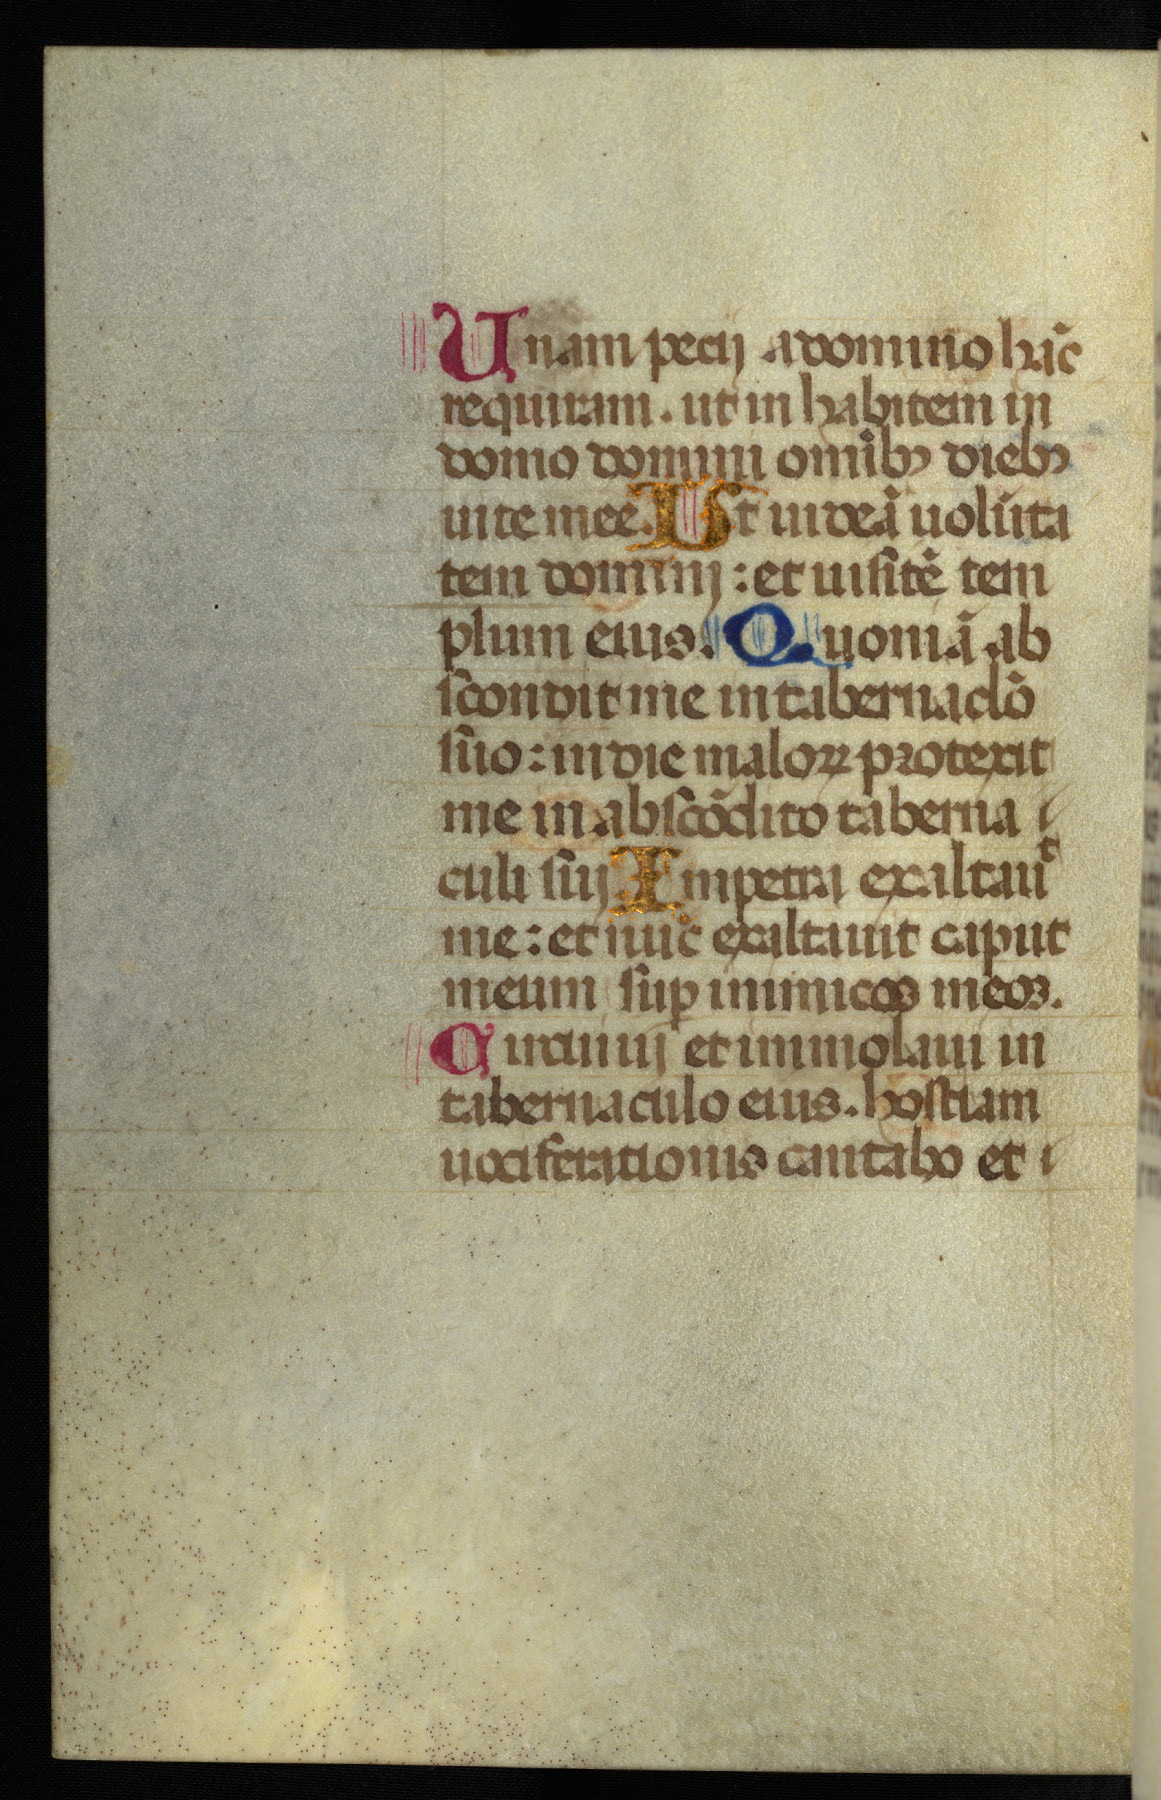 Unam pecij a domino hāc
requiram. ut in habitem in
domo domini omībꝫ diebꝫ
uite mee. Ut uideā uolūta
tem dominij : et uisitē tem
plum eius. Quoniā ab
scondit me in tabernaclō
suo : in die maloꝝ protexit
me in abscōdito taberna
culi suij In petra exaltauiᵗ
me : et nūc exaltauit caput
meum suꝑ inimicos meos.
Circuiuij et immolaui in
tabernaculo eius. hostiam
uociferationis cantabo et